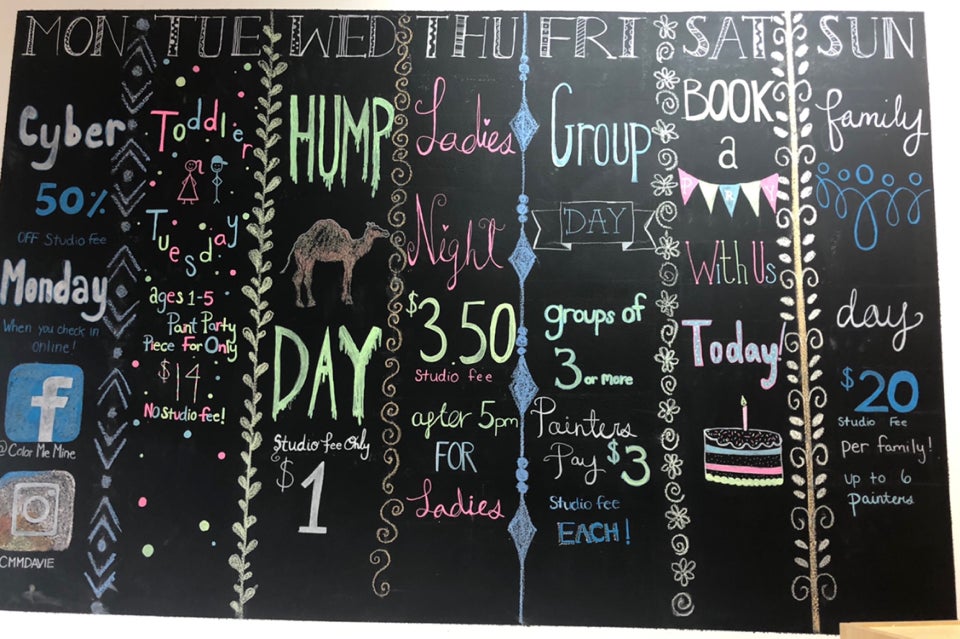 MON TUE WED THU FRI SAT SUN
Cyber
50%
OFF Studio fee
Monday
When you check in
online!
f
@Color Me Mine
CMMDAVIE
Toddler
Tuesday
ages 1-5
Paint Party
Piece For Only
$14
No studio fee!
HUMP
DAY
Studio fee Only
$1
Ladies
Night
$3.50
Studio fee
after 5pm
FOR
Ladies
Group
DAY
groups of
3 or more
Painters
Pay $3
Studio fee
EACH!
BOOK
a
PRTY
With Us
Today!
family
day
$20
Studio Fee
per family!
up to 6
painters